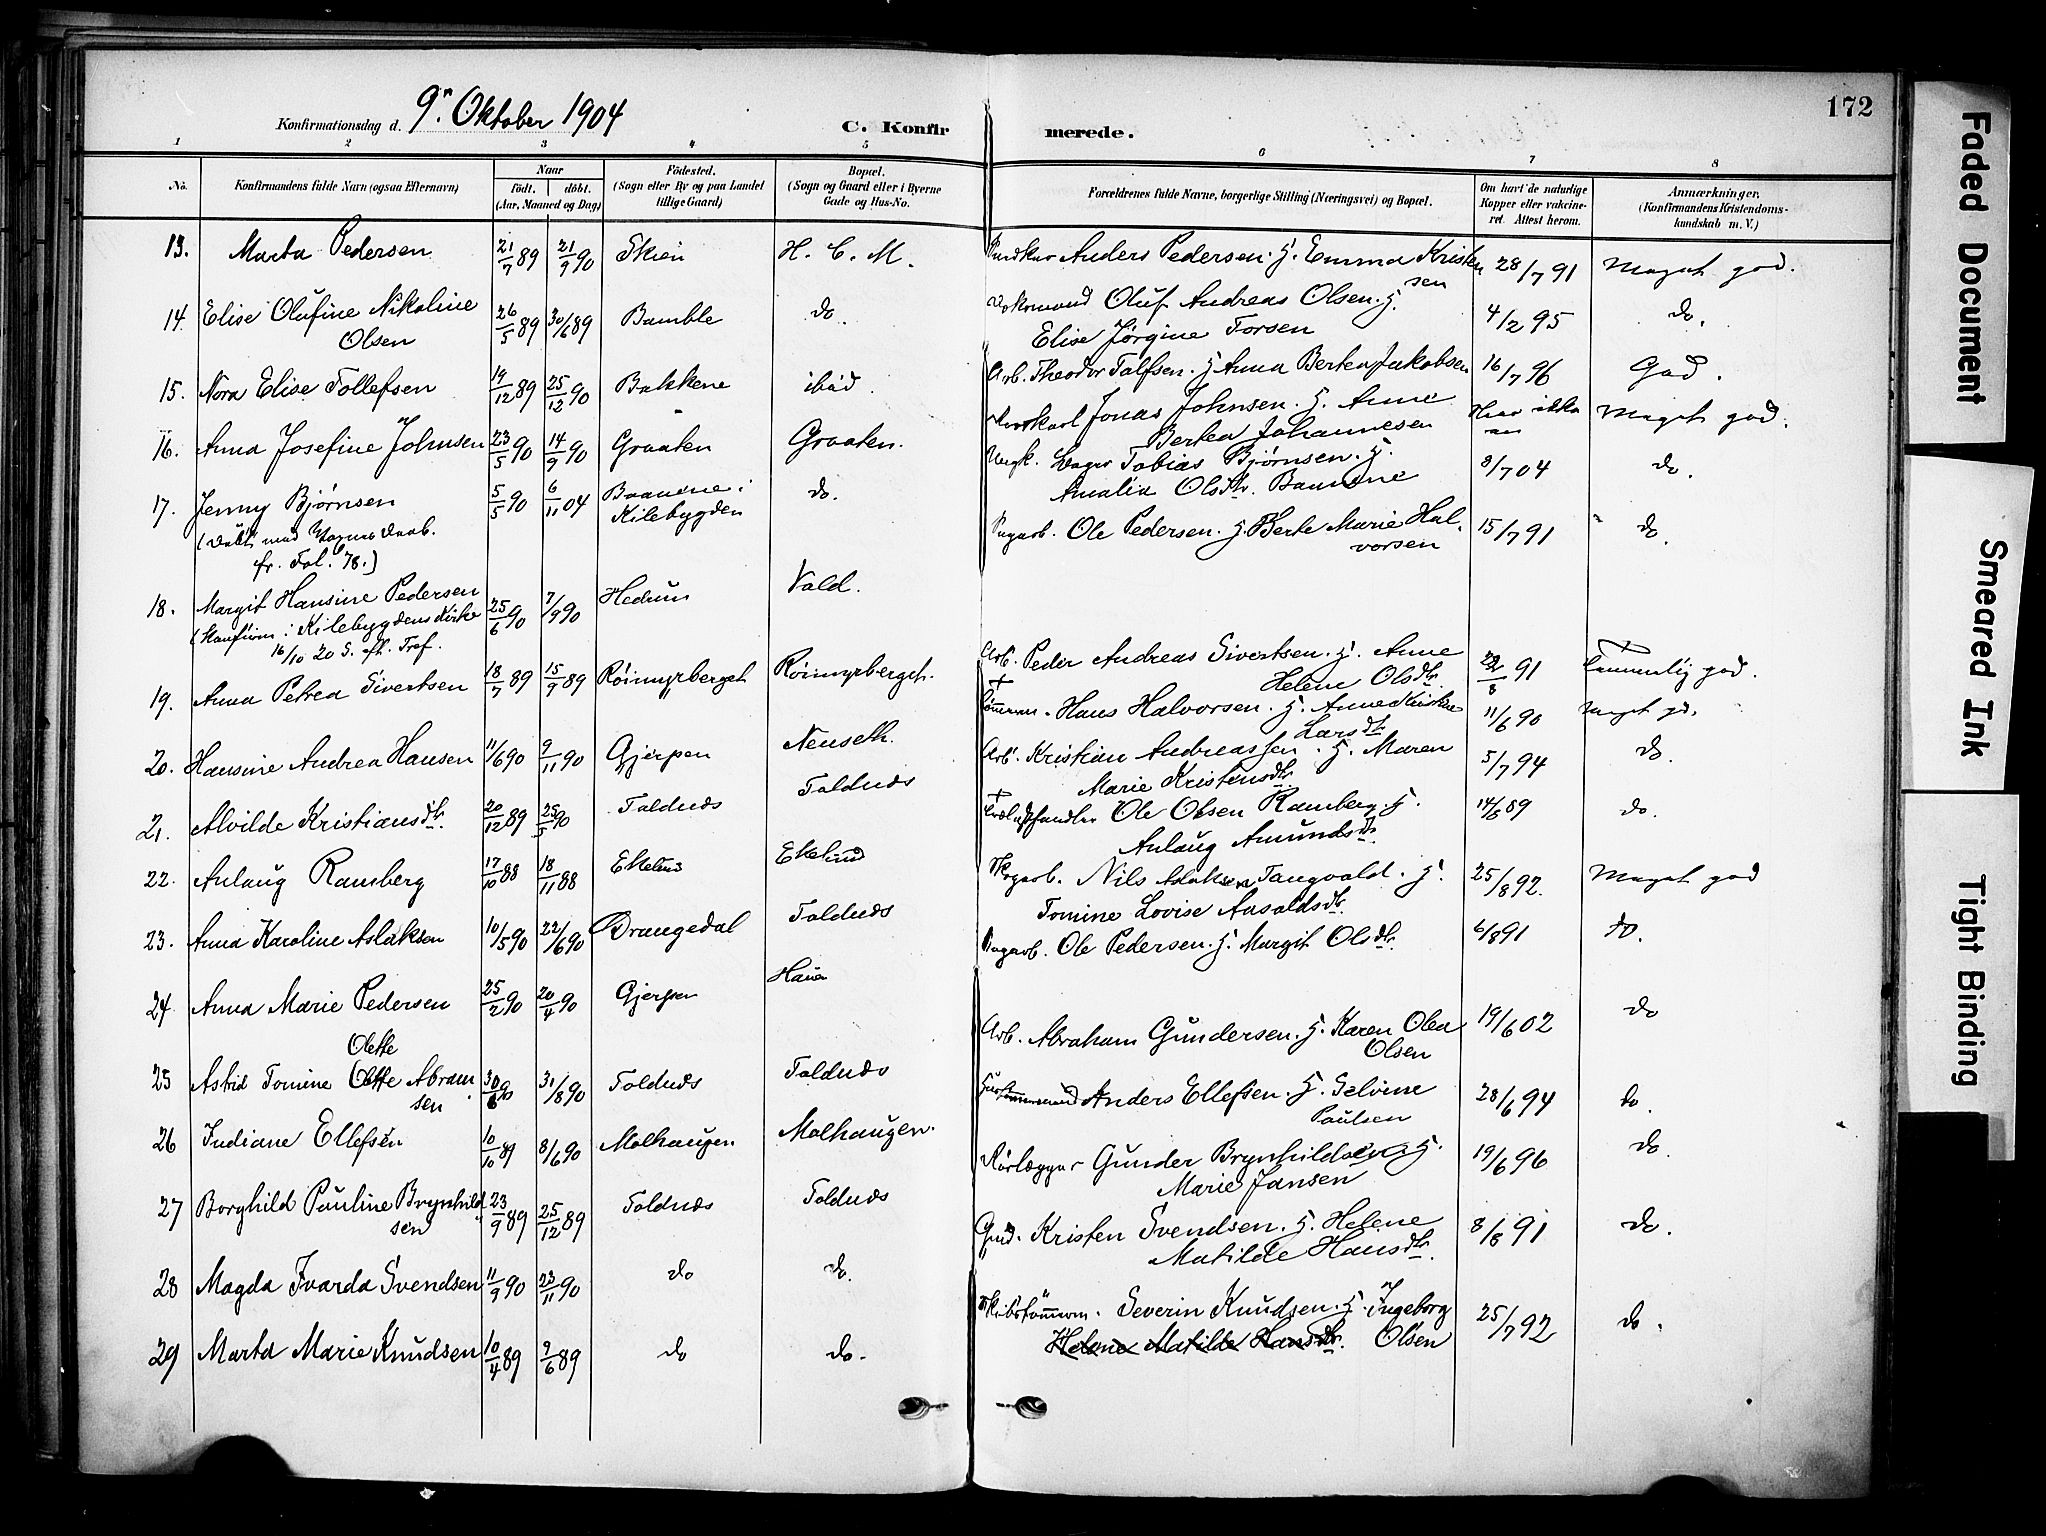 Konfirmationsdag d. 9n. Oktober 1904
C. Konfirmerede.
172
1 2 3 4 5 6 7 8
No. Konfirmandens fulde Navn (ogsaa Efternavn) Naar født. døbt. (Aar, Maaned og Dag) Fødested. (Sogn eller By og paa Landet tillige Gaard) Bopæl. (Sogn og Gaard eller i Byerne Gade og Hus-No. Forældrenes fulde Navne, borgerlige Stilling (Næringsvei) og Bopæl. Om havt de naturlige Kopper eller vakcineret. Attest herom. Anmærkninger, (Konfirmandens Kristendomskundskab m. V.)
13. Marta Pedersen 21/7 89 21/9 90 Skien H. C. M. Anders Pedersen. H. Emma Kristensen 28/7 91 Meget god.
14. Elise Olufine Nikoline Olsen 26/5 89 30/6 89 Bamble do. Oluf Andreas Olsen. H. Elise Jørgine Torsen 4/2 95 do.
15. Nora Elise Tollefsen 19/12 89 25/12 90 Bakkene ibid. Arb. Theodor Tolfsen. H. Anna Bertea Jakobsen 16/7 96 God.
16. Anna Josefine Johnsen 23/5 90 14/9 90 Graaten Graaten. Jonas Johnsen. H. Anne Bertea Johannesen Har ikke Meget god.
17. Jenny Bjørnsen 5/5 90 6/11 04 Baanene i Kilebygden do. Ungk. Tobias Bjørnsen. H. Amalia Olsdtr. Baanene 8/7 04 do.
fr. Fol. 78.)
18. Margit Hansine Pedersen 25/6 90 7/9 90 Hedrum Vold. Ole Pedersen. H. Berte Marie Halvorsen 15/7 91 do.
(Konfirm. i Kilebygdens Kirke
16/10 20 S. eft. Tref.
19. Anna Petrea Sivertsen 18/7 89 15/9 89 Røimyrberget Røimyrberget. Arb. Peder Andreas Sivertsen. H. Anne Helene Olsdtr. 22/8 91 Temmelig god.
20. Hansine Andrea Hansen 11/6 90 9/11 90 Gjerpen Nenseth. Hans Halvorsen. H. Anne Kirstine Larsdtr. 11/6 90 Meget gd.
21. Alvilde Kristiansdtr. 20/12 89 25/5 90 Foldnes Foldnes Arb. Kristian Andreassen. H. Maren Marie Kristensdtr. 5/7 94 do.
22. Anlaug Ramberg 17/10 88 18/11 88 Ekelund Ekelund Ole Olsen Ramberg. H. Anlaug Amundsdtr. 14/6 89 do.
23. Anna Karoline Aslaksen 10/5 90 22/6 90 Drangedal Foldnes Nils Aslaksen Tangvald. H. Tomine Lovise Aasoldsdtr. 25/8 92. Meget god
24 Anna Marie Pedersen 25/2 90 20/4 90 Gjerpen Hauen Ole Pedersen. H. Margit Olsdtr. 6/8 91 do.
25 Astrid Tomine Olette Abramsen 30/6 90 31/8 90 Foldnes Foldnes Arb. Abraham Gundersen. H. Karen Olea Olsen 19/6 02 do
26 Indiane Ellefsen 10/10 89 8/6 90 Molhaugen Molhaugen. Anders Ellefsen. H. Selvine Paulsen 28/6 94 do.
27 Borghild Pauline Brynhildsen 23/9 89 25/12 89 Foldnes Foldnes Rørlægger Gunder Brynhildsen. H. Marie Jansen 19/6 96 do.
28 Magda Ivarda Svendsen 11/9 90 23/11 90 do do. Kristen Svendsen. H. Helene Matilde Hansdtr. 8/8 91 do.
29 Marta Marie Knudsen 10/4 89 9/6 89 do do. Skibstømmerm. Severin Knudsen. H. Ingeborg Helene Matilde Hansdtr. Olsen 25/7 92 do.
Faded Document
Smeared Ink
Tight Binding